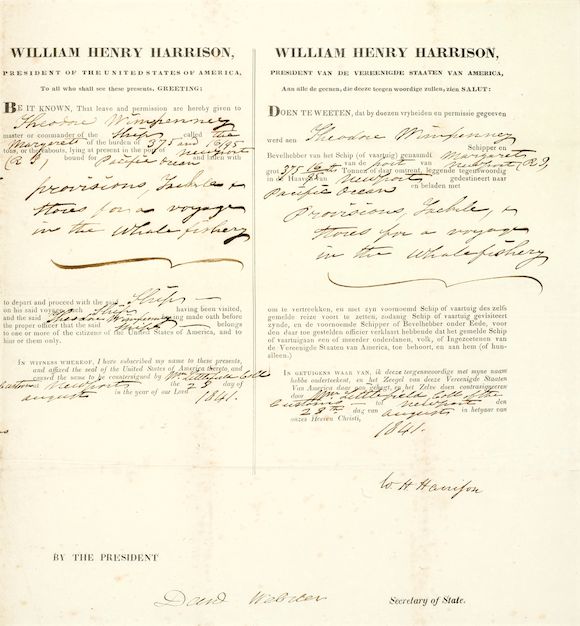 WILLIAM HENRY HARRISON,
PRESIDENT OF THE UNITED STATES OF AMERICA,
To all who shall see these presents, GREETING:
BE IT KNOWN, That leave and permission are hereby given to
Theodore Wimpenney
master or commander of the Ship called the
Margarett of the burden of 375 and 16/95
tons, or thereabouts, lying at present in the port of Newport
(R I) bound for Pacific Ocean and laden with
provisions, Tackile &
stores for a voyage
in the Whale fishery
to depart and proceed with the said Ship
on his said voyage, such Ship having been visited,
and the said Theodore Wimpenney having made oath before
the proper officer that the said Ship belongs
to one or more of the citizens of the United States of America, and to
him or them only.
IN WITNESS WHEREOF, I have subscribed my name to these presents,
and affixed the seal of the United States of America thereto, and
caused the same to be countersigned by Wm Littlefield Coll
Newport the 28 day of
august in the year of our Lord 1841.
WILLIAM HENRY HARRISON,
PRESIDENT VAN DE VEREENIGDE STAATEN VAN AMERICA,
Aan alle de geenen, die deeze tegen woordige zullen, zien SALUT:
DOEN TE WEETEN, dat by doezen vryheiden en permissie gegeeven
werd aen Theodore Wimpenney Schipper en
Bevelhebber van het Schip (of vaartuig) genaamdt Margarett
van de port van Newport, (R I)
groot 375 16/95th Tonnen of daar omtrent, leggende tegenswoordig
in de Haaven van Newport gedestineert naar
Pacific Ocean en beladen met
Provisions, Tackile, &
stores for a voyage
in the Whalefishery
om te vertreekken, en met zyn voornoemd Schip of vaartuig des zelfs
gemelde reize voort te zetten, zodanig Schip of vaartuig gevisiteert
zynde, en de voornoemde Schipper of Bevelhebber onder Eede, voor
den daar toe gestelden officier verklaart hebbende dat het gemelde Schip
of vaartuigaan een of meerder onderdanen, volk, of Ingezetenen van
de Vereenigde Staaten van America, toe behoort, en aan hem (of hun
alleen.)
IN GETUIGENS WAAR VAN, ik deeze tegenwoordige met myne naam
hebbe onderteekent, en het Zeegel van deze Vereenigde Staaten
Van America daar aan gehegt, en het Zelve doen contrasigneeren
door Wm Littlefield Coll of the
Customs tot Newport den
28th dag van august in hetyaar van
onzes Heeren Christi, 1841.
W H Harrison
BY THE PRESIDENT
Danl Webster Secretary of State.